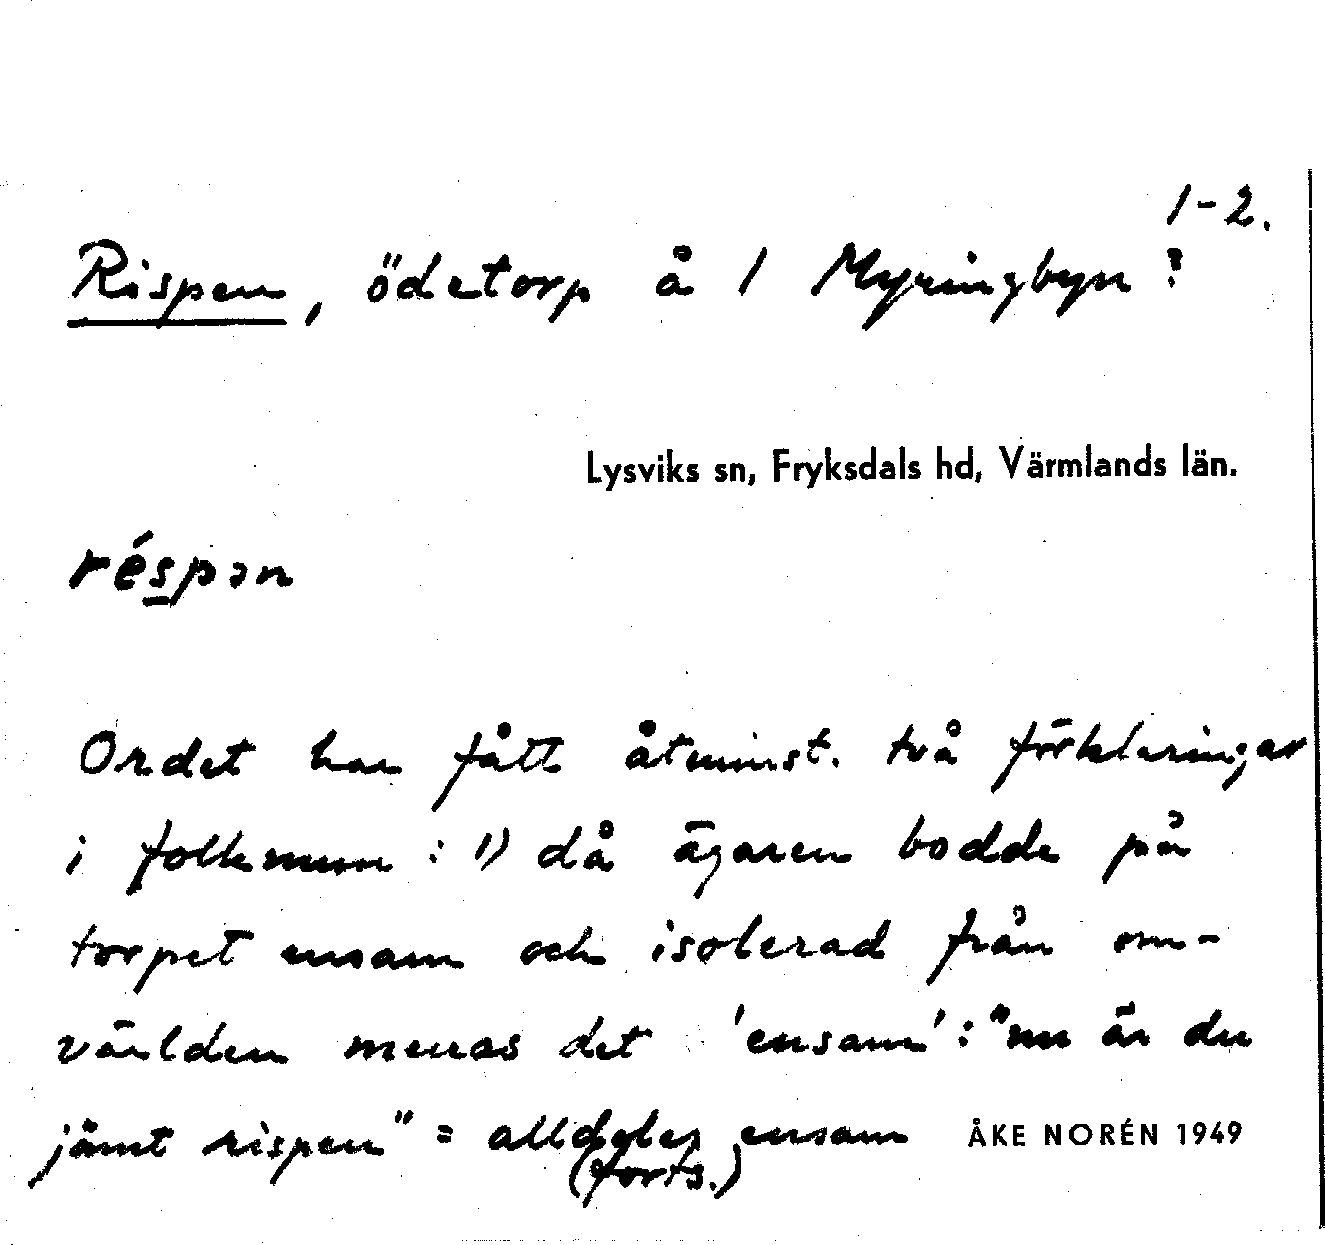 1-2.
Rispen, ödetorp å 1 Myringbyn?
Lysviks sn, Fryksdals hd, Värmlands län.
réspən
Ordet har fått åtminst. två förklaringar
i folkmun: 1) då ägaren bodde på
torpet ensam och isolerad från om-
världen menas det 'ensam': "nu är du
jämt rispen" = alldeles ensam
ÅKE NORÉN 1949
(forts.)